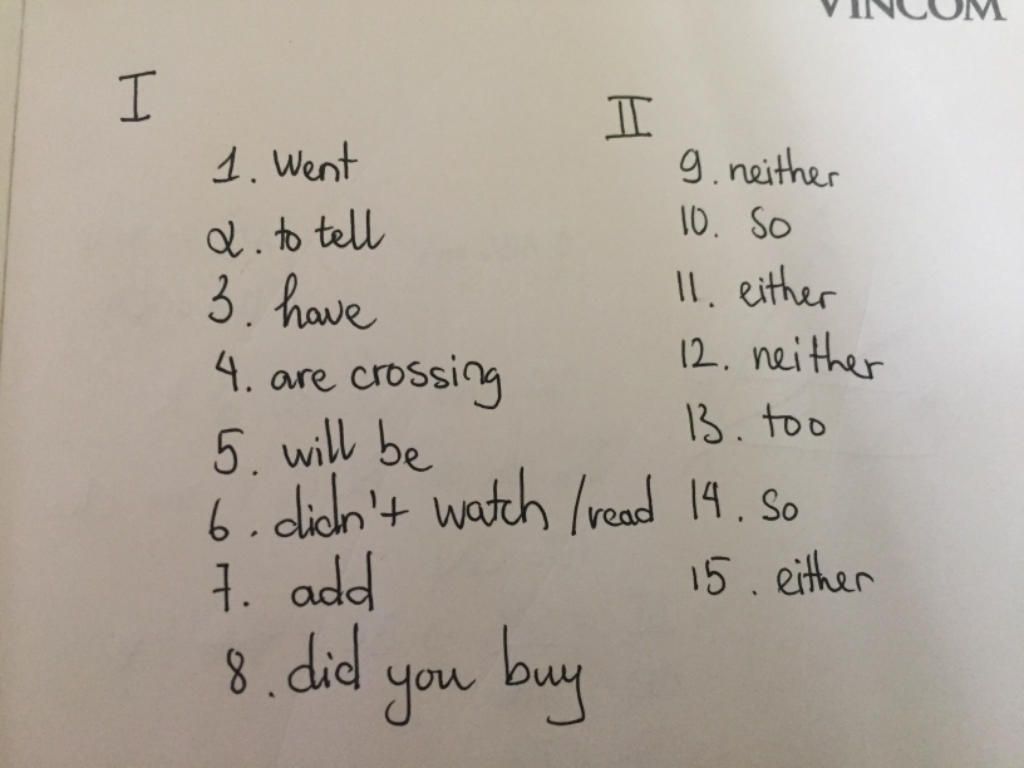 VINCOM
I
1. Went
2. to tell
3. have
4. are crossing
5. will be
6. didn't watch /read
7. add
8. did you buy
II
9. neither
10. So
11. either
12. neither
13. too
14. So
15. either